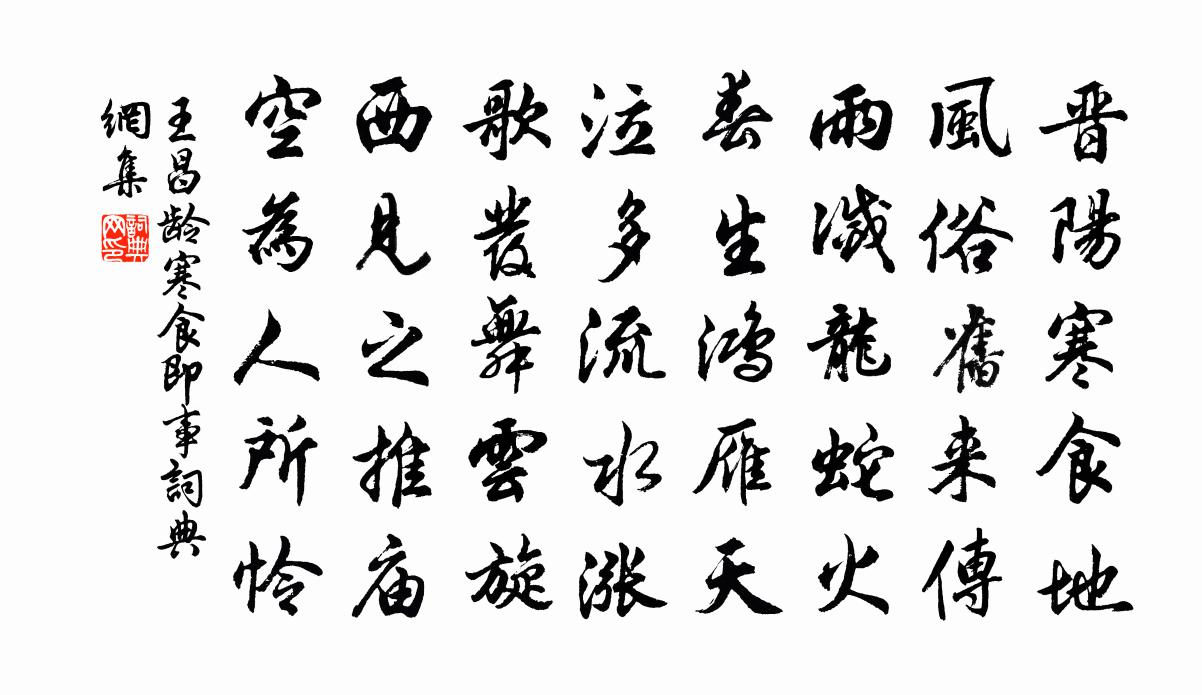 晋陽寒食地
風俗舊来傳
雨滅龍蛇火
春生鸿雁天
泣多流水漲
歌發舞雲旋
西見之推庙
空為人所怜
王昌龄寒食即事詞典
網集
詞典
网印